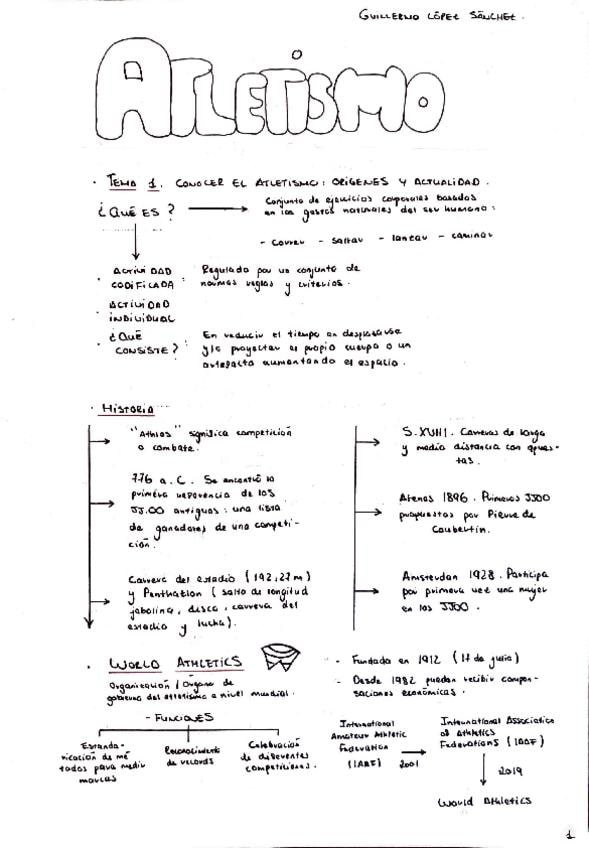 GUILLERMO LÓPEZ SÁNCHEZ.
ATLETISMO
· TEMA 1. CONOCER EL ATLETISMO: ORÍGENES Y ACTUALIDAD.
¿QUÉ ES?
Conjunto de ejercicios corporales basados
en los gestos naturales del ser humano:
- correr - saltar - lanzar - caminar
· ACTIVIDAD
CODIFICADA:
Regulada por un conjunto de
normas reglas y criterios.
· ACTIVIDAD
INDIVIDUAL
· ¿QUÉ
CONSISTE?
En reducir el tiempo en desplazarse
y/o proyectar el propio cuerpo o un
artefacto aumentando el espacio.
· HISTORIA
"Athlos" significa competición
o combate.
776 a.C. Se encontró la
primera referencia de los
JJ.OO antiguos: una lista
de ganadores de una competi-
ción.
Carrera del estadio (192,27m)
y Penthatlon (salto de longitud
jabalina, disco, carrera del
estadio y lucha).
S.XVIII. Carreras de larga
y media distancia con apues-
tas.
Atenas 1896. Primeros JJOO
propuestos por Pierre de
Coubertin.
Amsterdan 1928. Participa
por primera vez una mujer
en los JJOO.
· WORLD ATHLETICS
Organización / Órgano de
gobierno del atletismo a nivel mundial.
- FUNCIONES
Estanda-
rización de mé
todos para medir
marcas
Reconocimiento
de records
Celebración
de diferentes
competiciones.
- Fundada en 1912 (17 de julio)
- Desde 1982 pueden recibir compen-
saciones económicas.
International
Amateur Athletic
Federation
(IAAF)
2001
International Association
of Athletics
Federations (IAAF)
2019
World Athletics
1